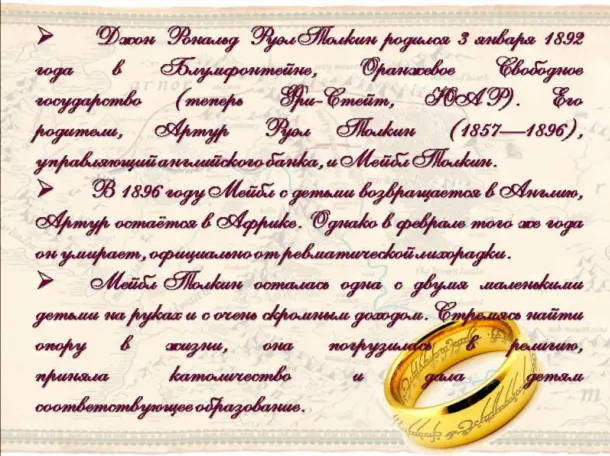 ➢ Джон Роналд Руэл Толкин родился 3 января 1892
года в Блумфонтейне, Оранжевое Свободное
государство (теперь Фри-Стейт, ЮАР). Его
родители, Артур Руэл Толкин (1857—1896),
управляющий английского банка, и Мейбл Толкин.
➢ В 1896 году Мейбл с детьми возвращается в Англию,
Артур остаётся в Африке. Однако в феврале того же года
он умирает, официально от ревматической лихорадки.
➢ Мейбл Толкин осталась одна с двумя маленькими
детьми на руках и с очень скромным доходом. Стремясь найти
опору в жизни, она погрузилась в религию,
приняла католичество и дала детям
соответствующее образование.